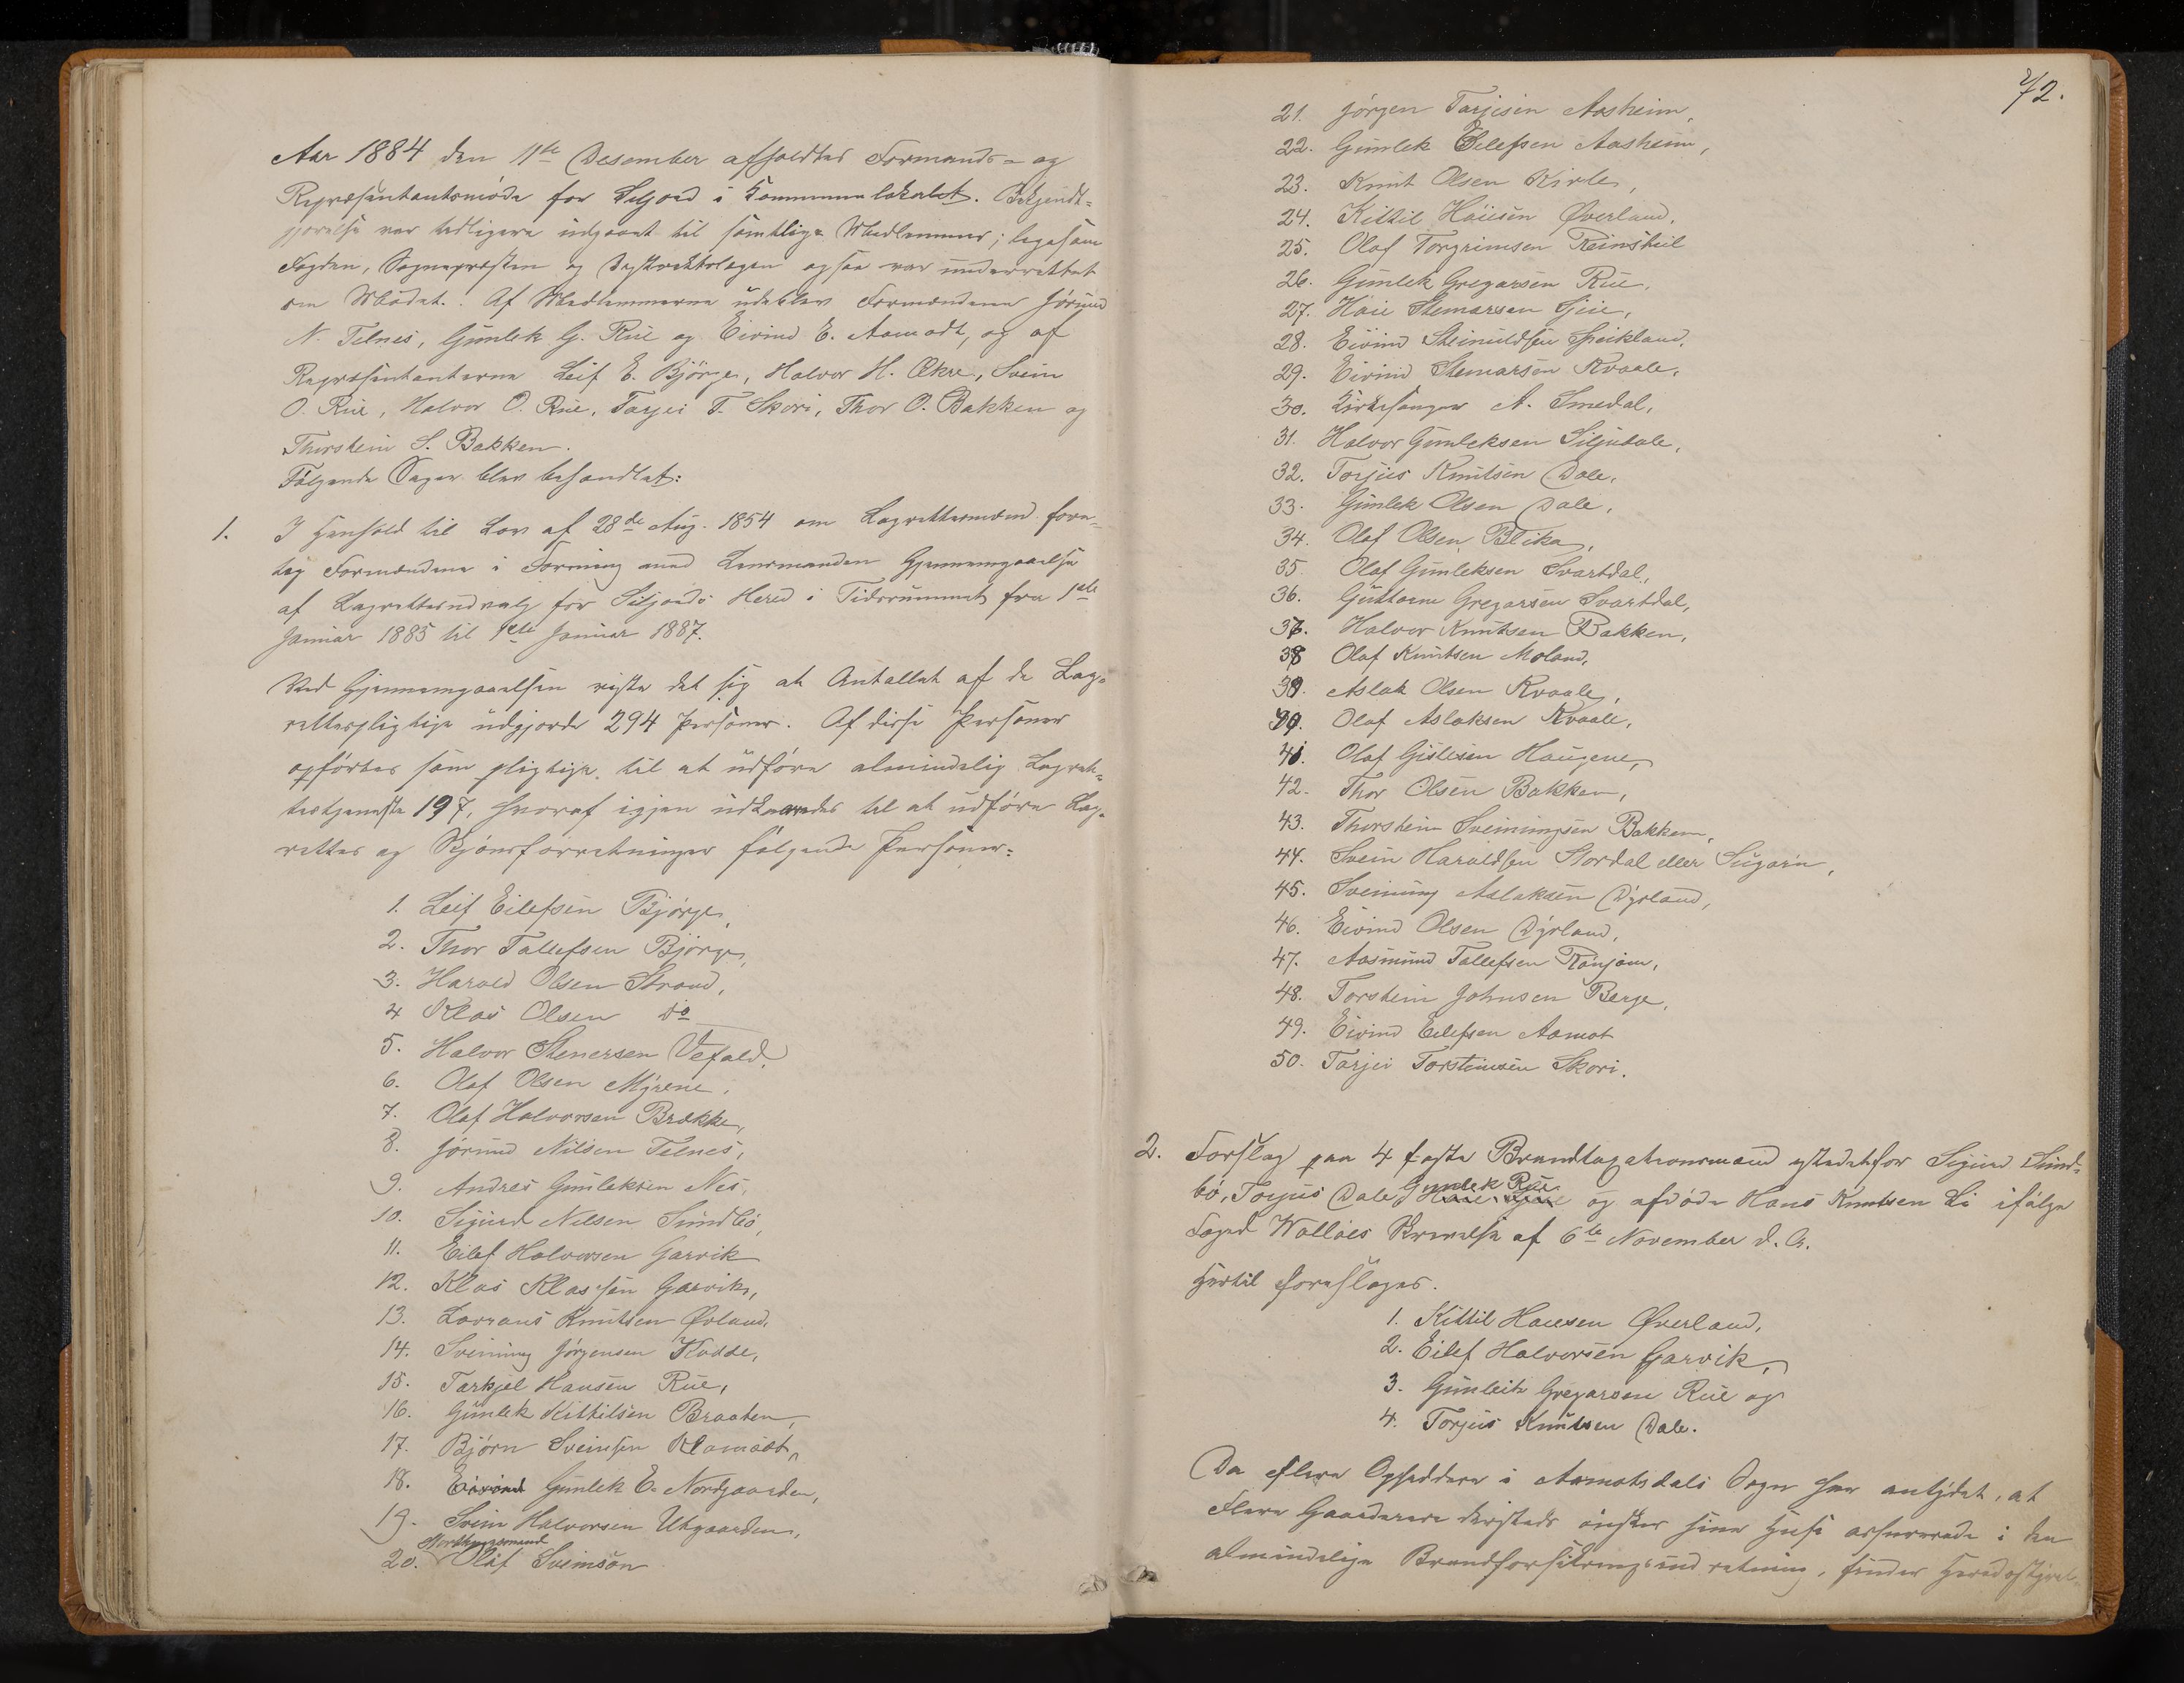 Aar 1884 den 11te Desember afholdtes Formands- og
Repræsentantsmöde for Seljord i Kommunelokalet. Bekjendt-
gjörelse var tidligere udgaaet til samtlige Medlemmer; ligesom
Fogden, Sognepræsten og Distriktslægen ogsaa var underrettet
om Mödet. Af Medlemmerne udeblev Formændene Jörund
N. Telnes, Gunlek G. Rue og Eivind E. Aamodt, og af
Repræsentanterne Leif E. Björge, Halvor H. Ekre, Svein
O. Rue, Halvor O. Rue, Tarjei T. Skori, Thor O. Bakken og
Thorstein S. Bakken.
Fölgende Sager blev behandlet:
1. I Henhold til Lov af 28de Aug. 1854 om Lagrettesmænd fore-
tog Formændene i Forening med Lensmanden Gjennemgaaelse
af Lagrettesudvalg for Seljords Hered i Tidsrummet fra 1ste
Januar 1885 til 1ste Januar 1887.
Ved Gjennemgaaelsen viste det sig at Antallet af de Lag-
rettespligtige udgjorde 294 Personer. Af disse Personer
opförtes som pligtige til at udföre almindelig Lagret-
testjeneste 197, hvoraf igjen udkaaredes til at udföre Lag-
rettes og Skjönsforretninger fölgende Personer:
1. Leif Eilefsen Björge,
2. Thor Tallefsen Björge,
3. Harald Olsen Strand,
4 Klas Olsen do
5. Halvor Stenersen Vefald,
6. Olaf Olsen Myrene,
7. Olaf Halvorsen Brække,
8. Jörund Nilsen Telnes,
9. Andres Gunleksen Nes,
10. Sigurd Nilsen Sundbö,
11. Eilef Halvorsen Garvik
12. Klas Klassen Garvik,
13. Lavrans Knutsen Øvland,
14. Sveinung Jörgensen Kodde,
15. Tarkjel Hansen Rue,
16. Gunlek Kittilsen Braaten,
17. Björn Sveinsen Aamodt,
18. Eivind Gunlek E. Nordgaarden,
19. Svein Halvorsen Utgaarden,
Storthingsmand
20. Olaf Sveinsön
72.
21. Jörgen Tarjeisen Aasheim,
22. Gunlek Eilefsen Aasheim,
23. Knut Olsen Kirle,
24. Kittil Hansen Øverland,
25. Olaf Torgrimsen Reinskeil
26. Gunlek Gregarsen Rue,
27. Haie Stemarsen
28. Eivind Steinuldsen
29. Eivind Stemarsen Kvaale,
30. Kirkesanger A. Smedal,
31. Halvor Gunleksen Siljudale,
32. Torjus Knutsen Dale,
33. Gunlek Olsen Dale,
34. Olaf Olsen Blika,
35. Olaf Gunleksen Svartdal,
36. Guttorm Gregarsen Svartdal,
37. Halvor Knutsen Bakken,
38 Olaf Knutsen Moland,
39. Aslak Olsen Kvaale,
40. Olaf Aslaksen Kvaale,
41. Olaf Gislesen Haugene,
42. Thor Olsen Bakken,
43. Thorstein Sveinungsen Bakken,
44. Svein Haraldsen Stordal eller Sugarn,
45. Sveinung Aslaksen Dyrland,
46. Eivind Olsen Dyrland,
47. Aasmund Tallefsen Rönjom,
48. Torstein Johnsen Berge,
49. Eivind Eilefsen Aamot
50. Tarjei Torsteinsen Skori.
2. Forslag paa 4 faste Brandtaxationsmænd istedetfor Sigurd Sund-
Gunlek Rue
bö, Torjus Dale, og afdöde Hans Knutsen Li ifölge
Foged Walløes Skrivelse af 6te November d. A.
Hertil foreslages.
1. Kittil Hansen Øverland,
2. Eilef Halvorsen Garvik,
3. Gunleik Gregarsen Rue og
4. Torjus Knutsen Dale.
Da flere Opsiddere i Aamotsdals Sogn har antydet, at
flere Gaardeiere dersteds önsker sine Huse assurerede i den
almindelige Brandforsikringsindretning, finder Heredsstyrel-